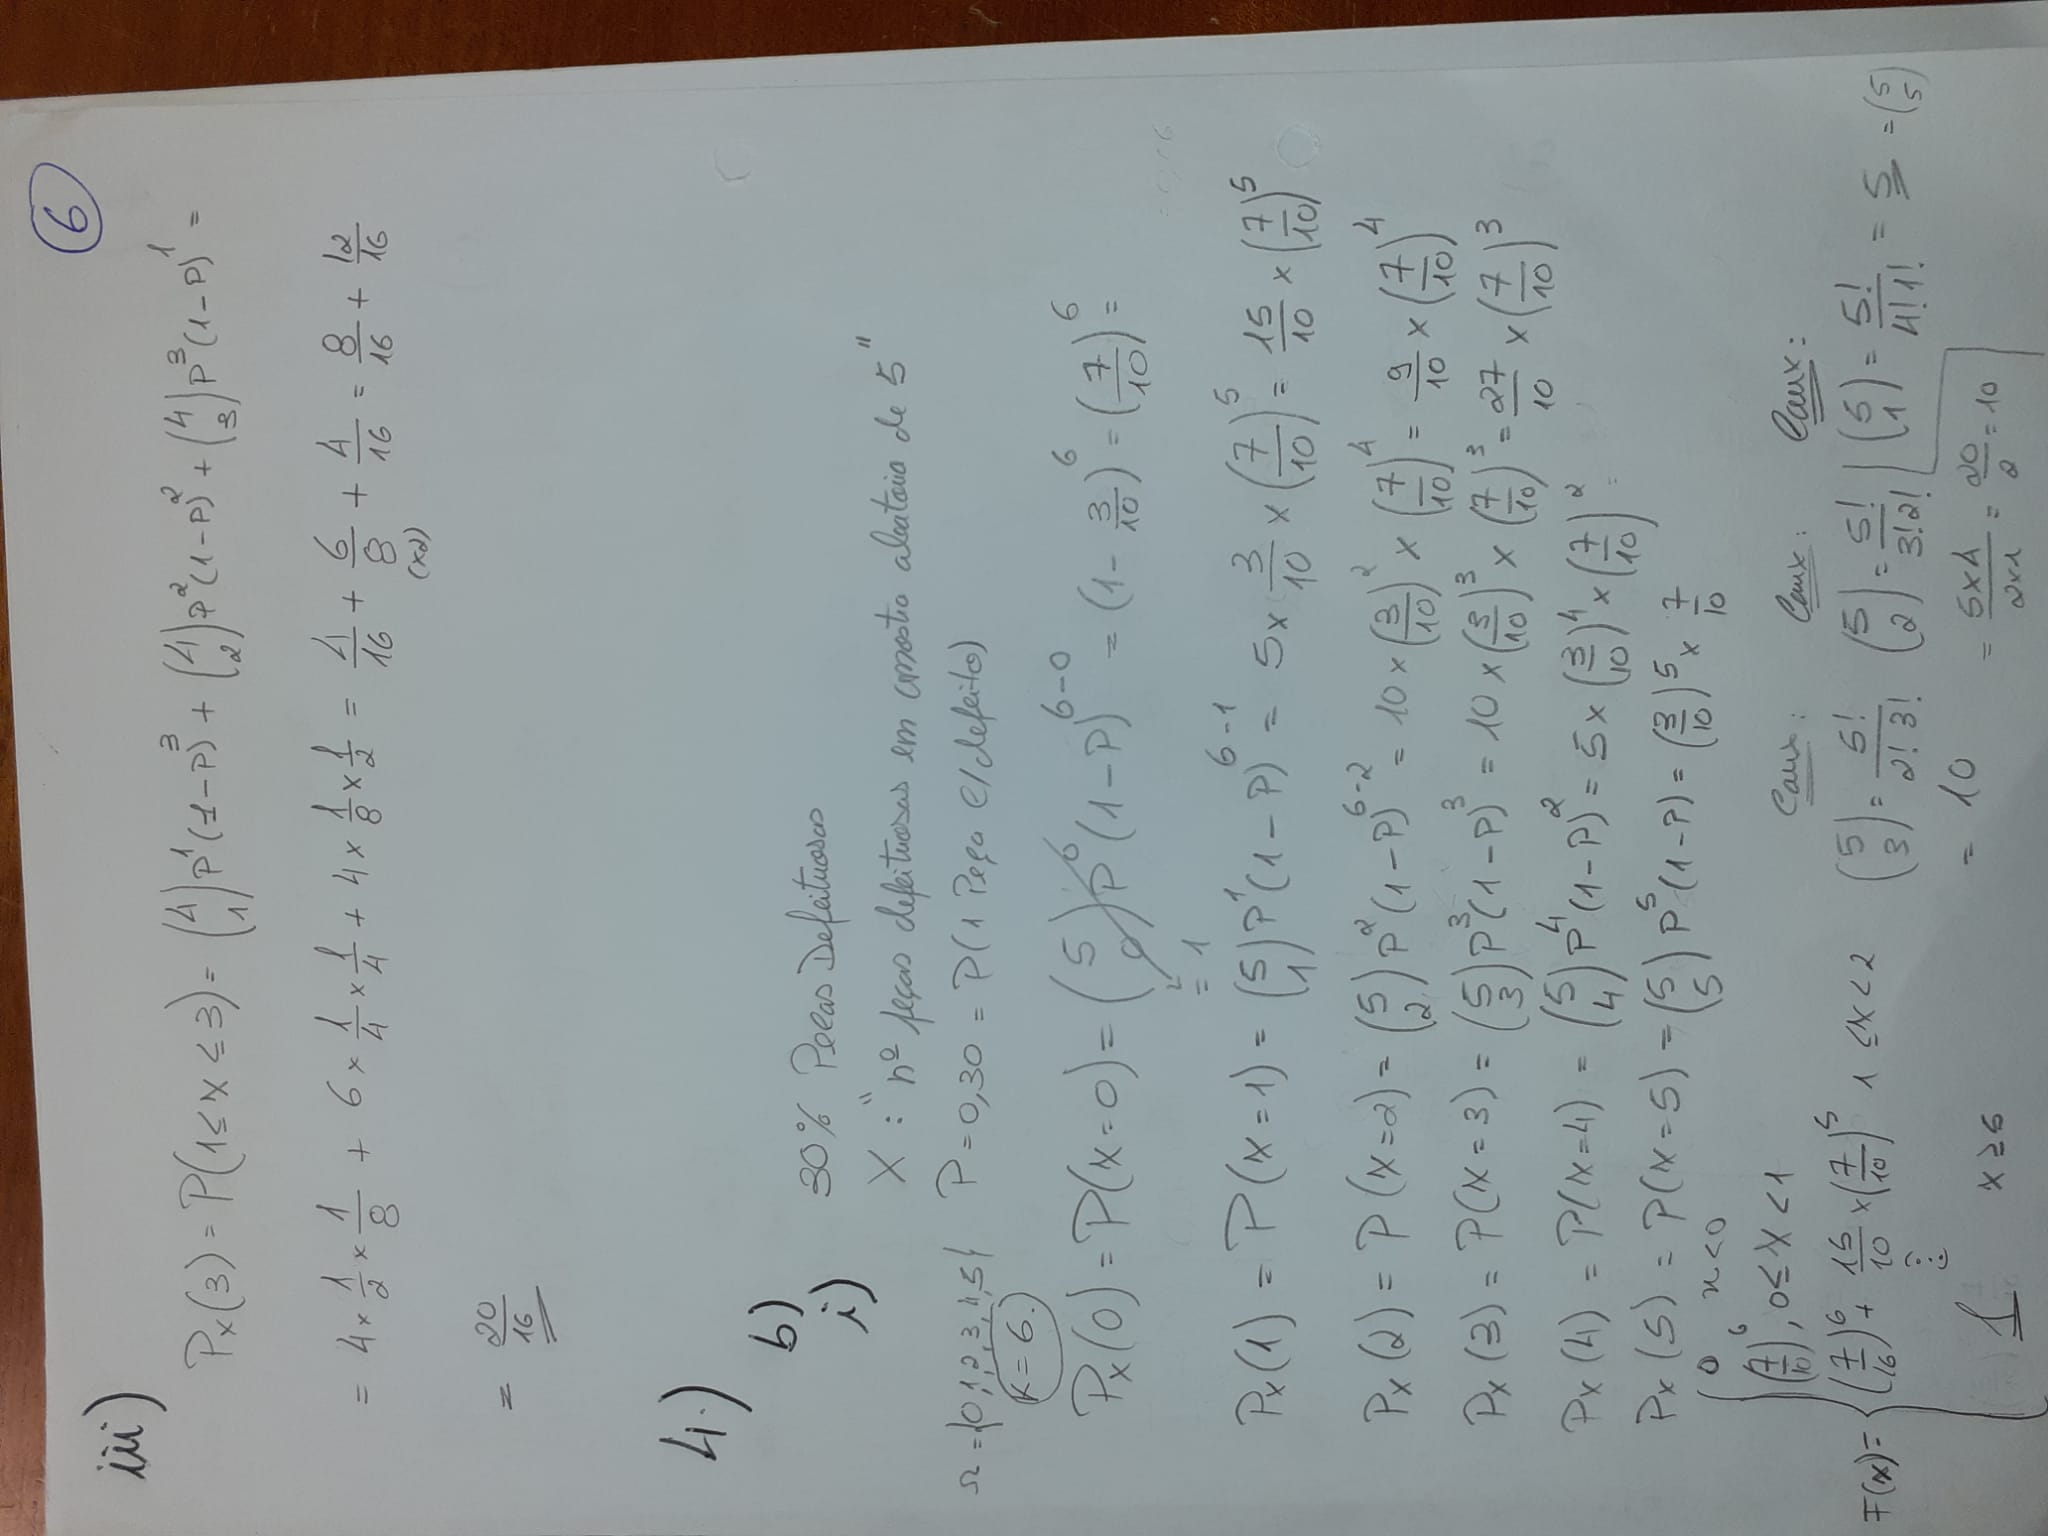 6
iii)
Px(3) = P(1 ≤ x ≤ 3) = (4 1) P^1 (1-P)^3 + (4 2) P^2 (1-P)^2 + (4 3) P^3 (1-P)^1 =
= 4 × 1/2 × 1/8 + 6 × 1/4 × 1/4 + 4 × 1/8 × 1/2 = 4/16 + 6/8 + 4/16 = 8/16 + 12/16
(x2)
= 20/16
4.)
b)
i)
30% Peças Defeituosas
X : "nº peças defeituosas em amostra aleatoria de 5"
Ω = {0,1,2,3,4,5} P = 0,30 = P(1 Peça c/defeito)
K = 6.
Px(0) = P(x=0) = (5 0) P^0 (1-P)^6-0 = (1 - 3/10)^6 = (7/10)^6 =
= 1
Px(1) = P(x=1) = (5 1) P^1 (1-P)^6-1 = 5 × 3/10 × (7/10)^5 = 15/10 × (7/10)^5
Px(2) = P(x=2) = (5 2) P^2 (1-P)^6-2 = 10 × (3/10)^2 × (7/10)^4 = 9/10 × (7/10)^4
Px(3) = P(x=3) = (5 3) P^3 (1-P)^3 = 10 × (3/10)^3 × (7/10)^3 = 27/10 × (7/10)^3
Px(4) = P(x=4) = (5 4) P^4 (1-P)^2 = 5 × (3/10)^4 × (7/10)^2 =
Px(5) = P(x=5) = (5 5) P^5 (1-P) = (3/10)^5 × 7/10
0 x<0
(7/10)^6 , 0 ≤ X < 1
F(x) = { (7/16)^6 + 15/10 × (7/10)^5 1 ≤ x < 2
⋮
1 x ≥ 5
Caux: Caux: Caux:
(5 3) = 5!/2! 3! (5 2) = 5!/3! 2! (5 1) = 5!/4! 1! = 5 = (5 5)
= 10 = 5×4/2×1 = 20/2 = 10